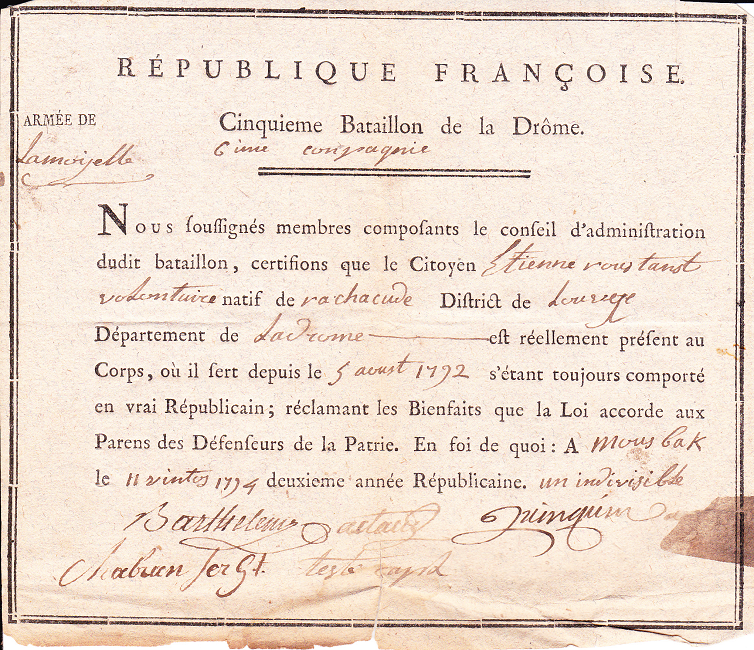 RÉPUBLIQUE FRANÇOISE.
ARMÉE DE
Lamoiselle
Cinquieme Bataillon de la Drôme.
6 ime compagnie
Nous souſſignés membres compoſants le conſeil d'adminiſtration
dudit bataillon, certifions que le Citoyen Etienne roustanst
volontaire natif de rachacude Diſtrict de Louveze
Département de Ladrome est réellement préſent au
Corps, où il ſert depuis le 5 aoust 1792 s'étant toujours comporté
en vrai Républicain; réclamant les Bienfaits que la Loi accorde aux
Parens des Défenſeurs de la Patrie. En foi de quoi: A mousbak
le 11 1794 deuxieme année Républicaine. un indivisible
Barthelemy